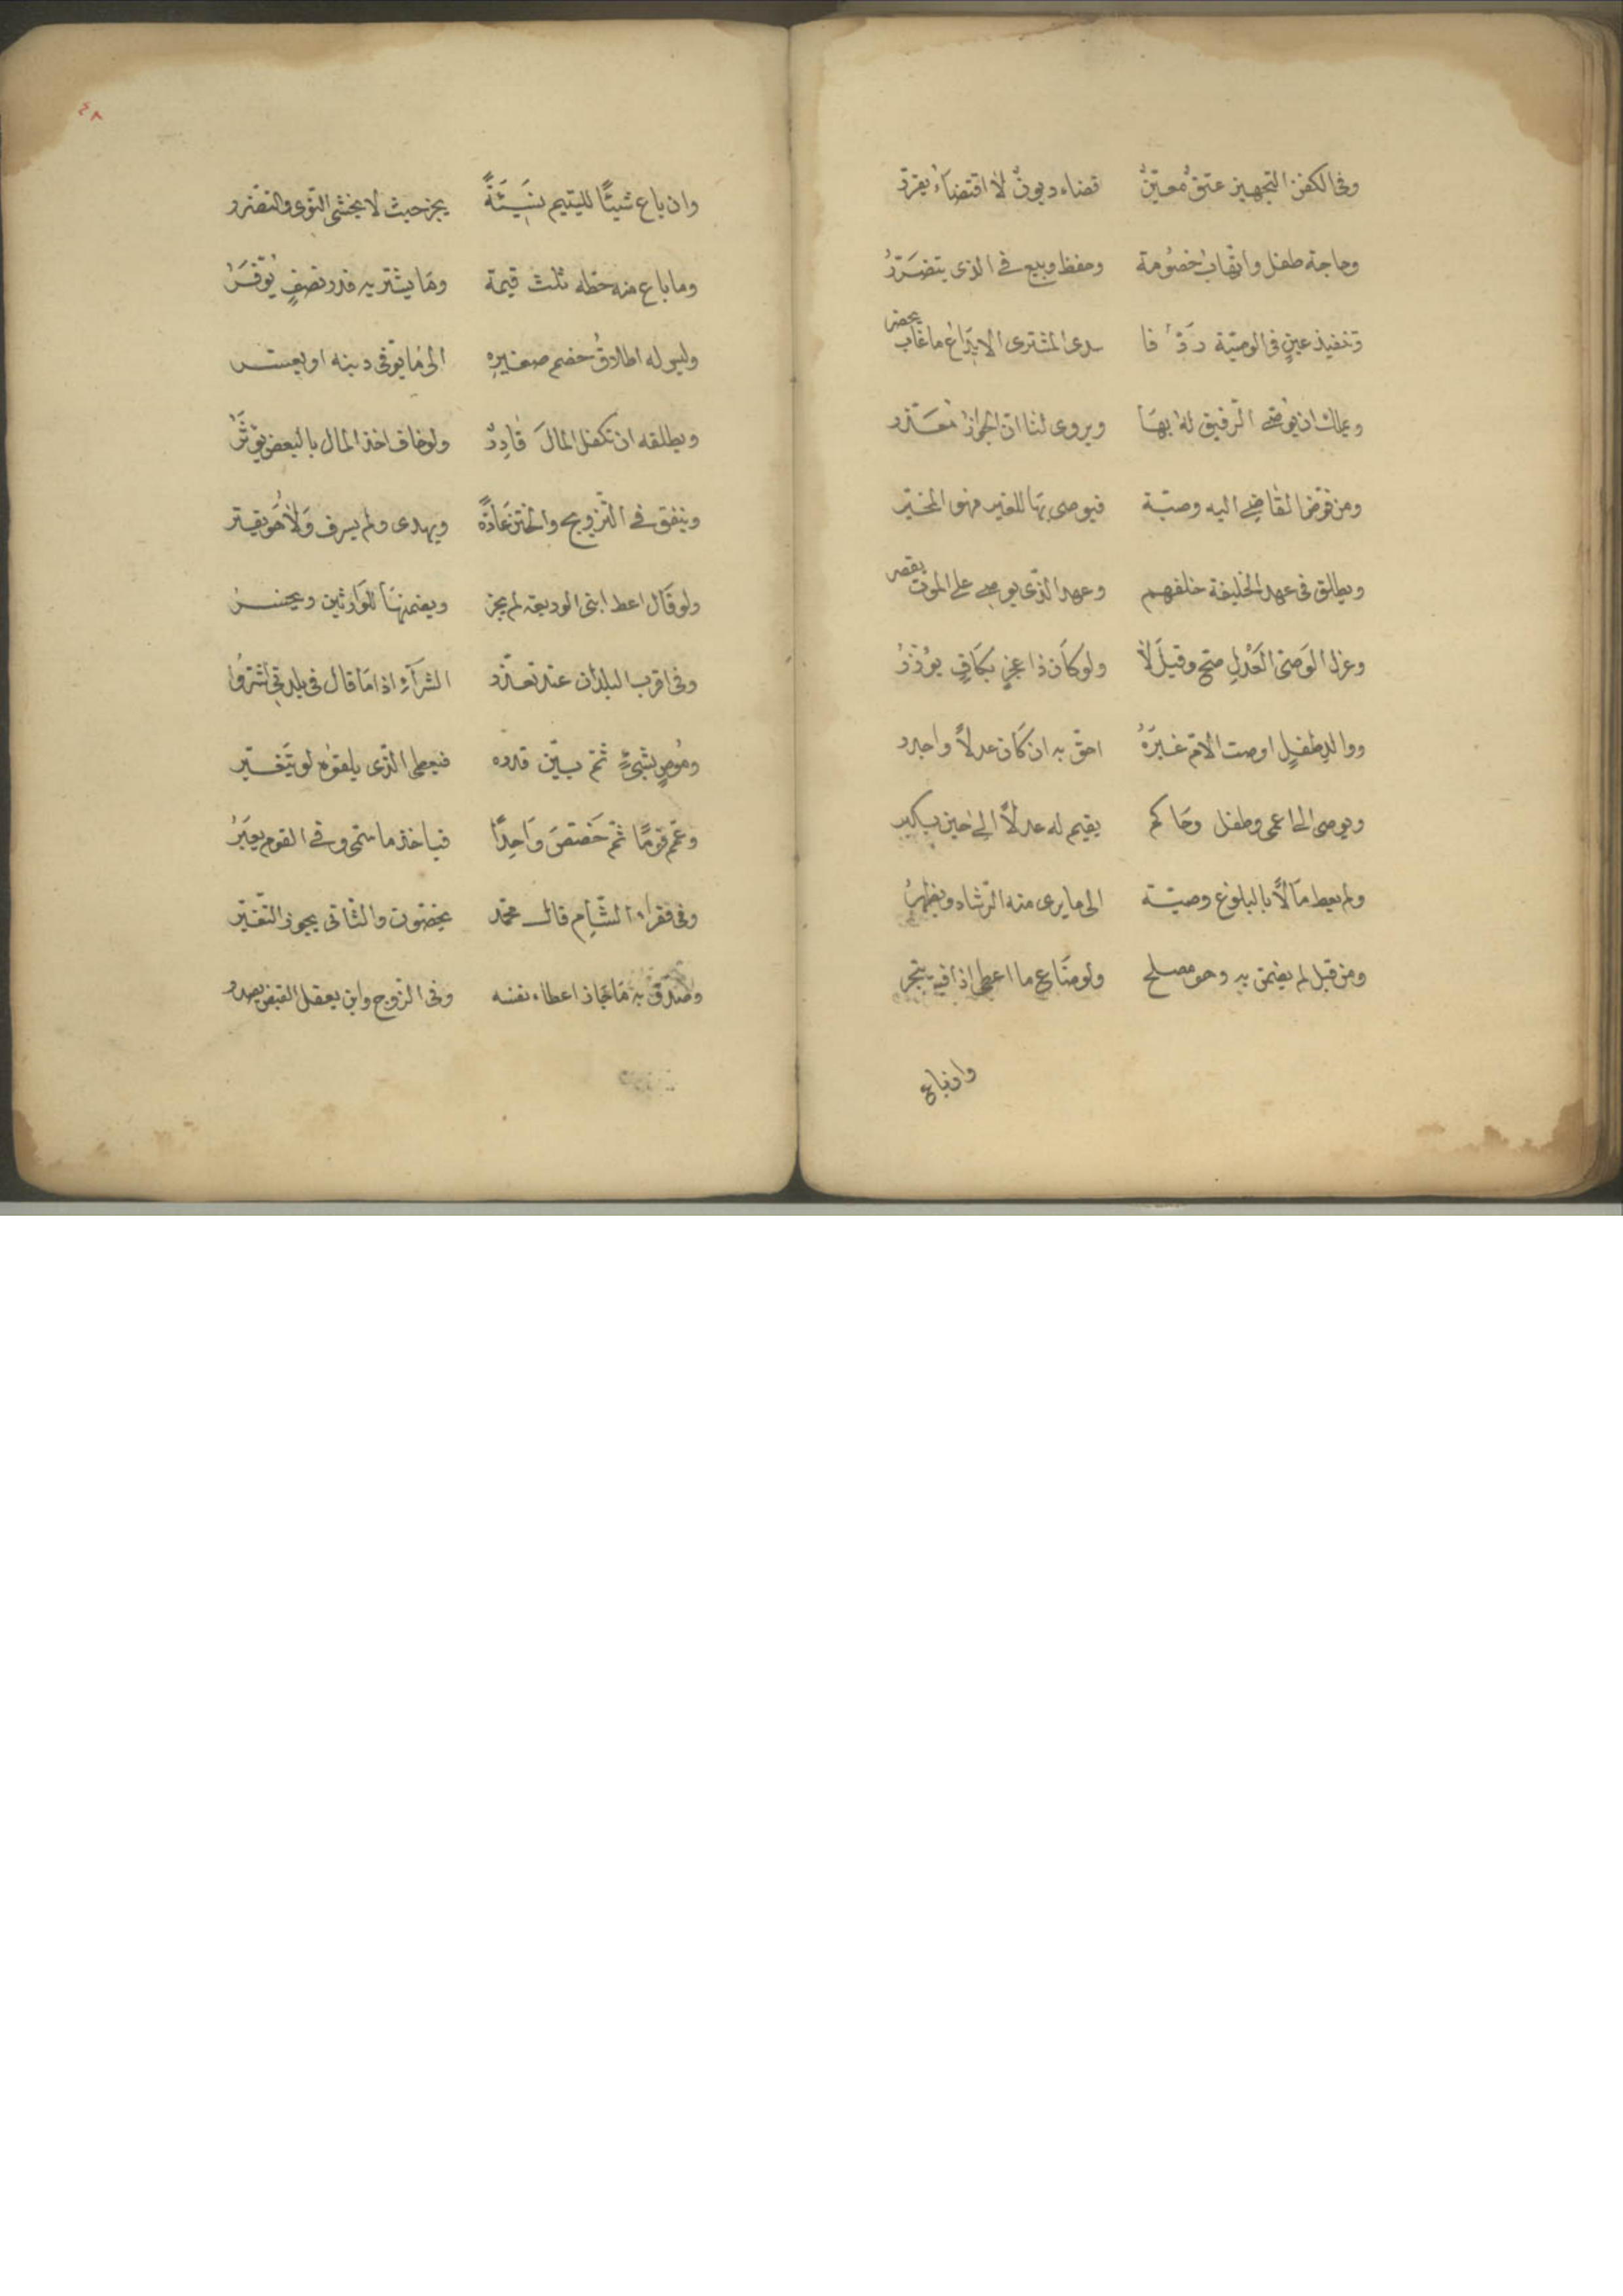 وفى الكفن التجهيز عتق معيّن قضاء ديون لا اقتضاء يقرّر
وحاجة طفل واتهاب خصومة وحفظ وبيع فى الذى يتضرّر
وتنفيذ عين فى الوصيّة المشترى الايداع ما غاب يحضر
ويملك ان يوصى الرفيق له بها ويروى لنا ان الجواز معذر
ومن فوّض القاضى اليه وصيّة فيوصى بها للغير فهو المخيّر
ويطلق فى عهد الخليفة خلفهم وعهد الذى يوصى على الموت يقصر
وعزل الوصى العَدْل صحّ وقيلَ لا ولو كان ذا عجز بكافٍ يؤزر
ووالد طفلٍ اوصت الامّ غيرَهُ احقّ به ان كان عدلاً واجدر
ويوصى الى اعمى وطفل وحاكم يقيم له عدلاً الى حين يكبر
ولم يعط مالاً بالبلوغ وصيّة الى ما يرى منه الرشاد ويظهرُ
ومن قبل لم يضمن به وهو مصلح ولو ضاع ما اعطى اذا فيه يتجر
وان باع
٤٨
وان باع شيئًا لليتيم بنَسِيْئَةً يجز حيث لا يخشى التوى والتضرر
وما باع منه حظه ثلث قيمة وما يشتريه قدر نصفٍ يُوَفّرُ
وليس له اطلاقُ خصم صغيرهِ الى ما يوفى دينه او يعسـر
ويطلقه ان تكفل المالَ قادرٌ ولو خاف اخذ المال بالبعض يؤثرُ
وينفق فى التزويج والختن عادةً ويهدى ولم يسرف ولا هو يقتر
ولو قال اعط ابنى الوديعة لم يجز ويضمنها للوارثين ويخسـر
وفى اقرب البلدان عند تعذّر الشرآء اذا ما قال فى بلدتى اشتروا
ومُوصٍ بشىءٍ ثم بيّن قدره فيعطى الذى يلقوه لو يتَغيّر
وعمّ قومًا ثمّ خَصّصَ واحِدًا فياخذ ما سمّى وفى القوم يعبَرُ
وفى فقراء الشام قال محمّد يخصّون والثانى يجوز التغيّر
وصدّق به ما جاز اعطاء نفسه وفى الزوج وابن يعقل القبض يصدر